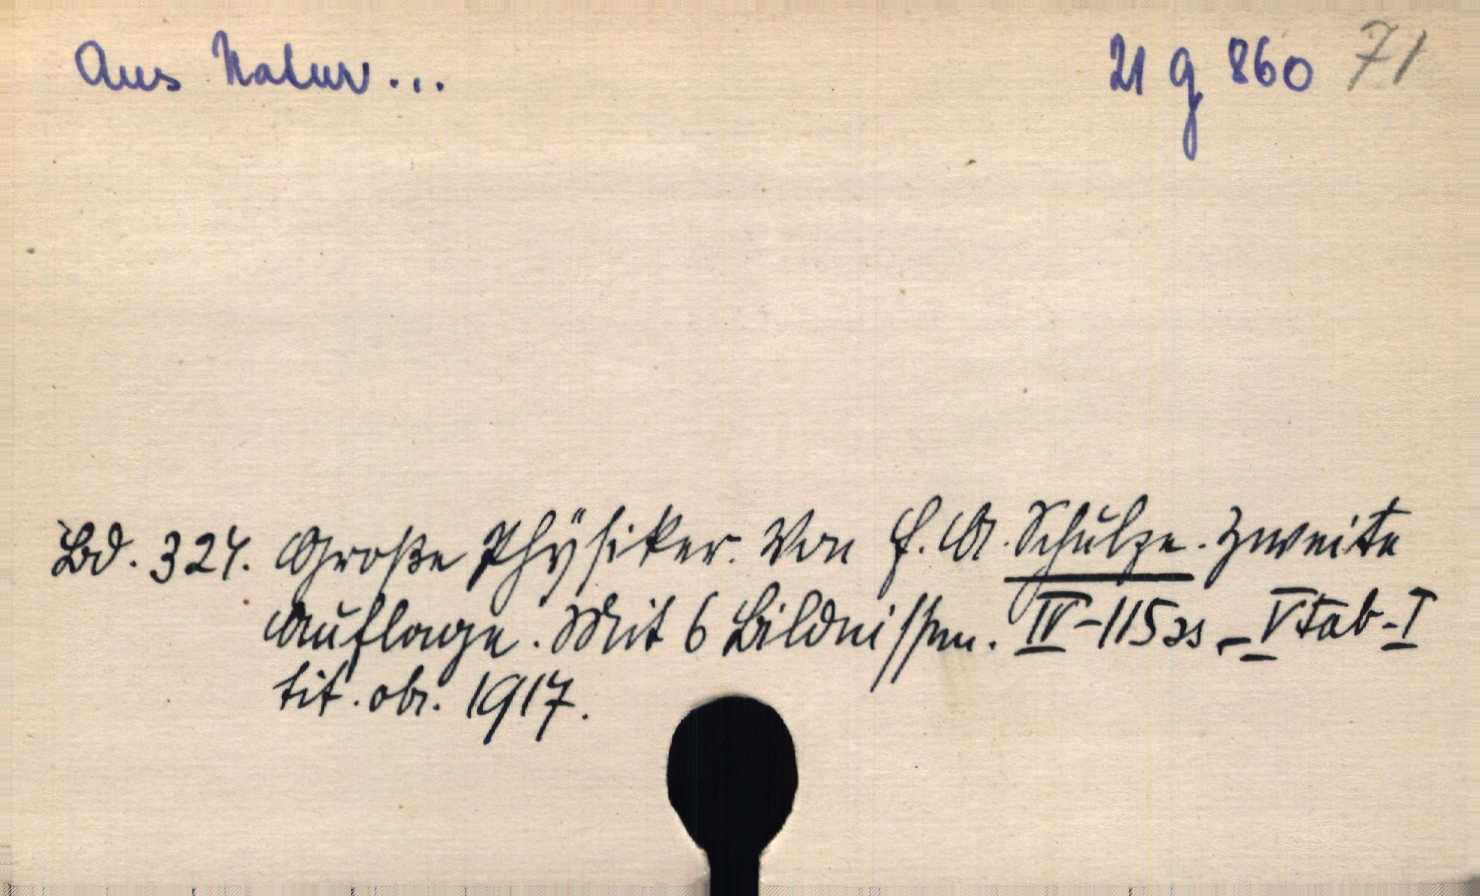 Aus Natur... 21 g 860 71
Bd. 324. Große Physiker. Von F. A. Schulze. Zweite
Auflage. Mit 6 Bildnissen. IV-115 ss - V tab - I
tit. ob. 1917.